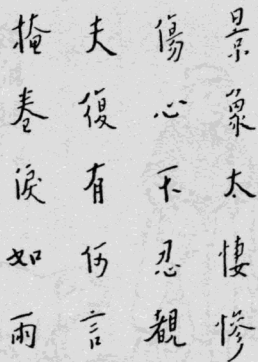 景象太悽慘
傷心不忍觀
夫復有何言
掩卷淚如雨